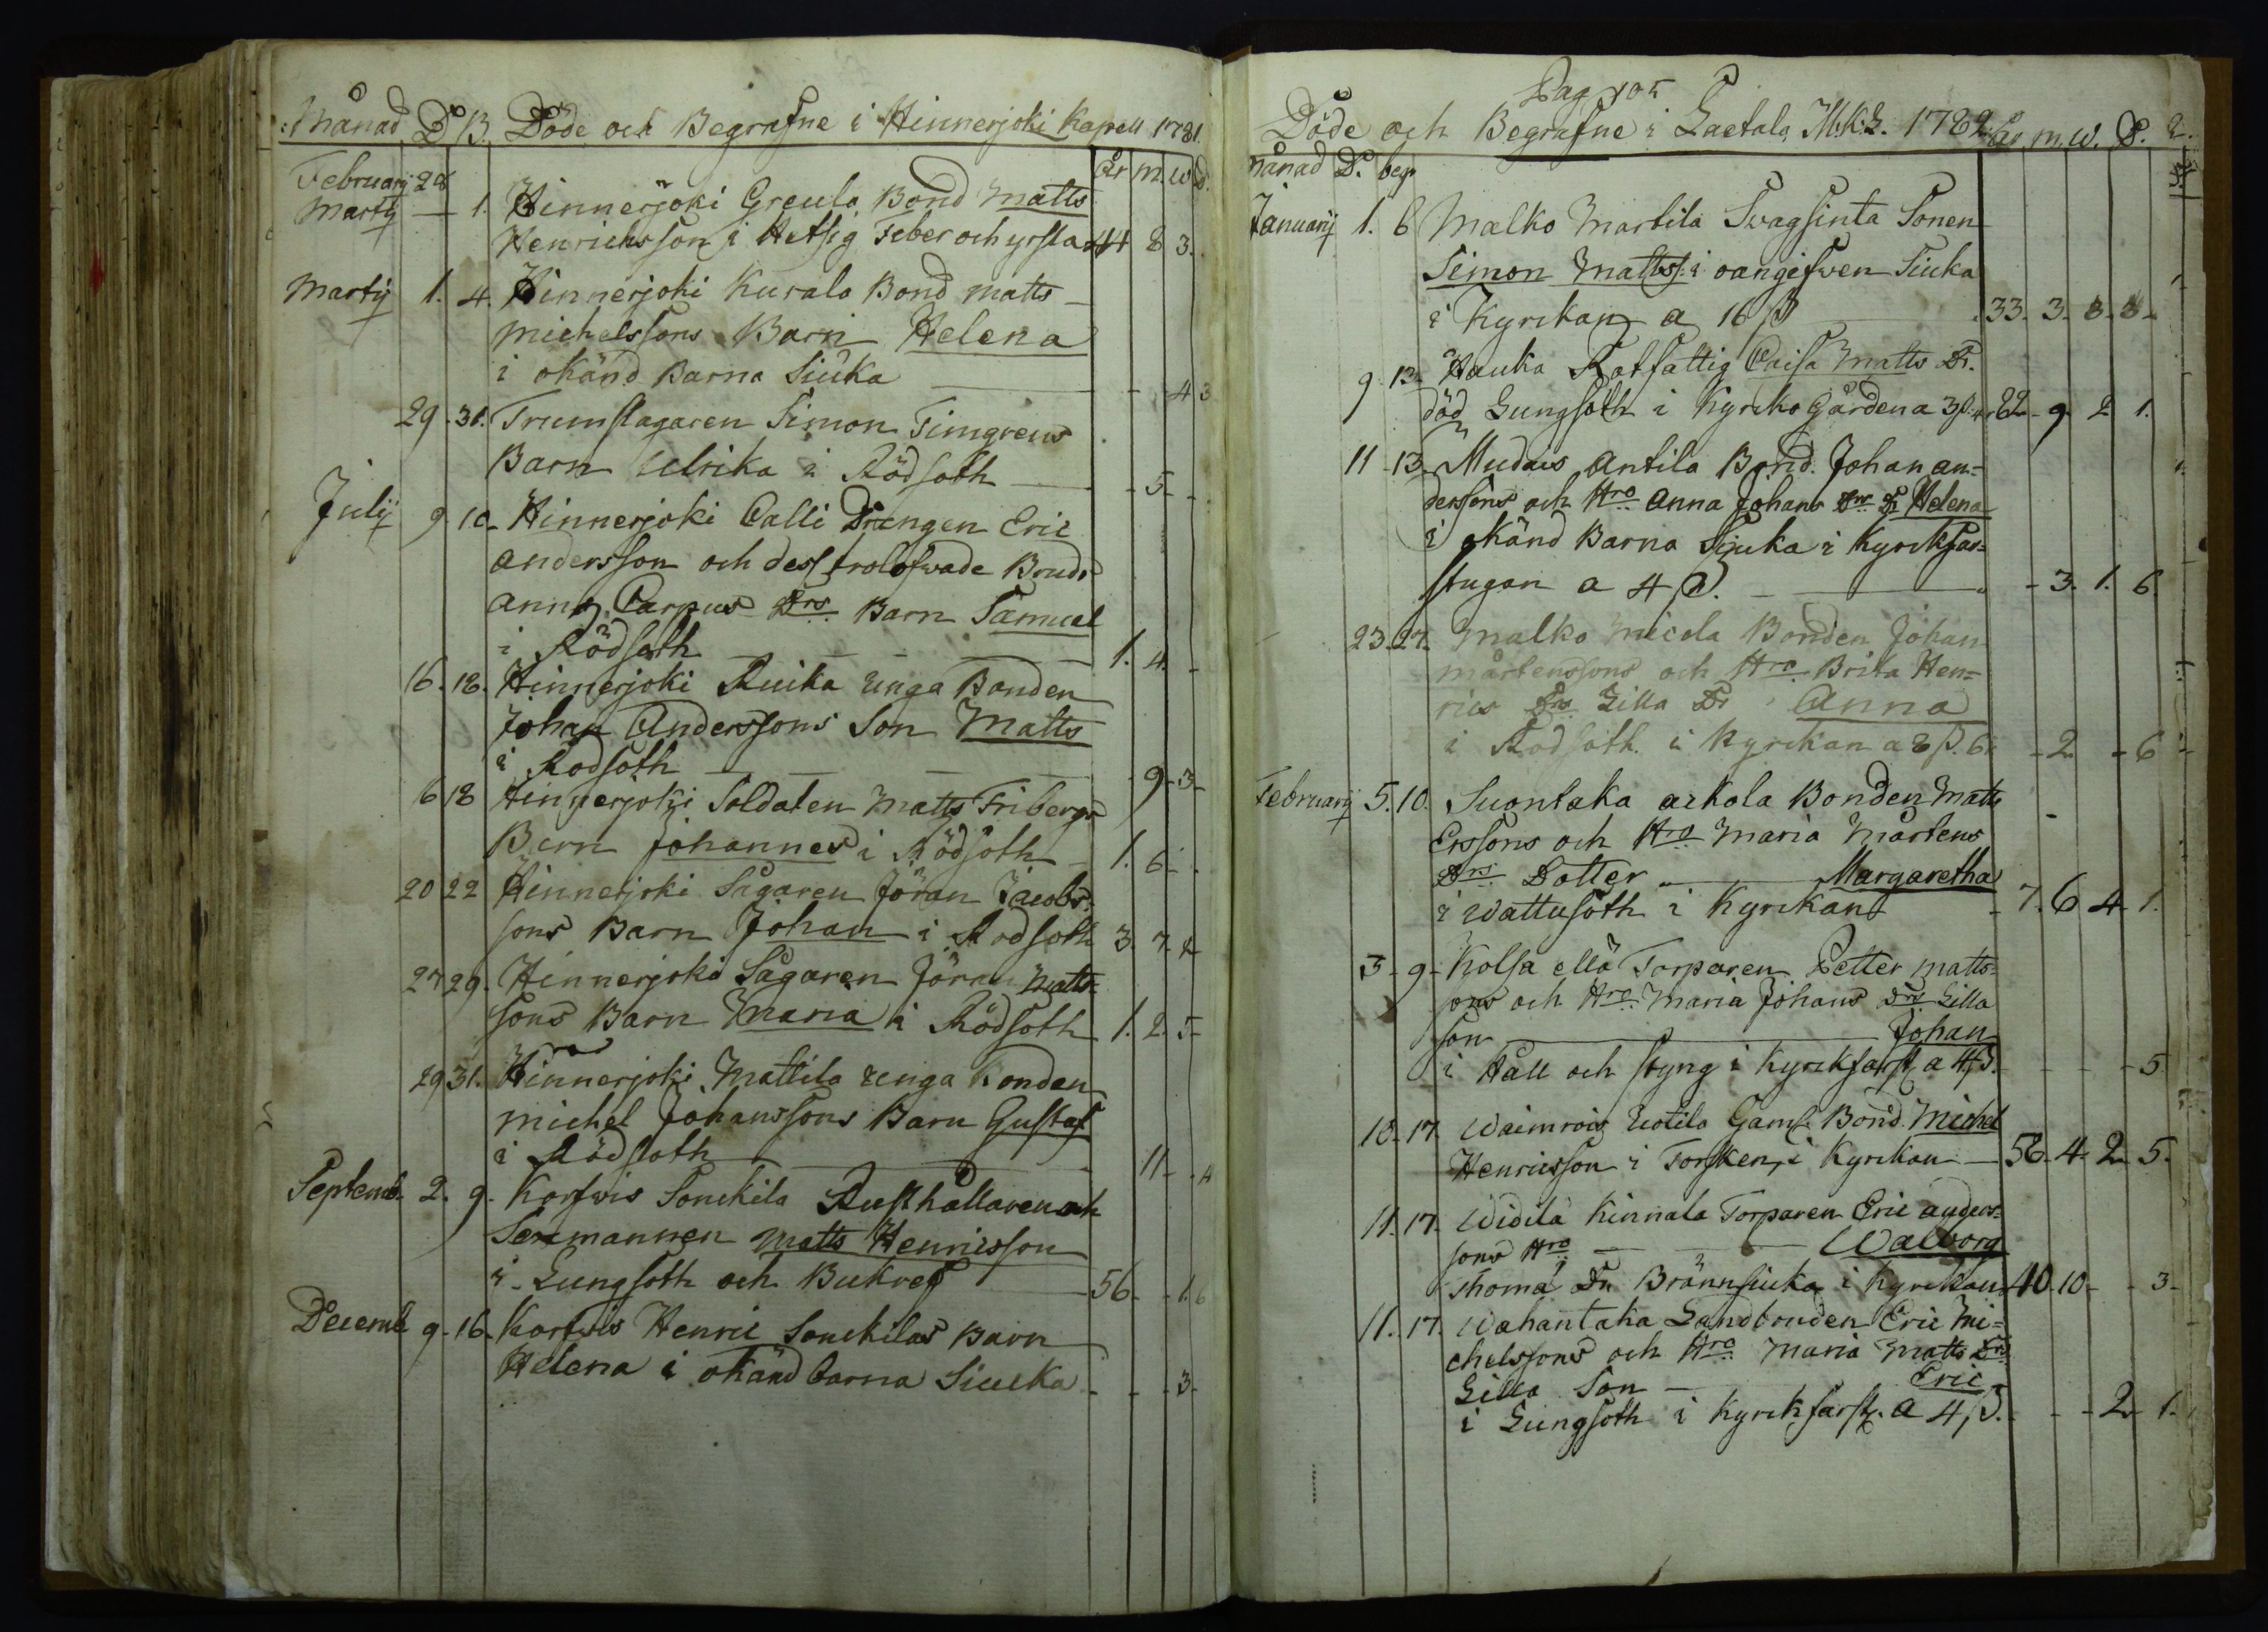 Månad D B. Döde och Begrafne i Hinnerjoki Kapell 1781.
År m. w D.
February 28
Marty — 1. Hinnerjoki Greula Bond Matts
Henrichsson i Hetsig Feber och yrsla 44 8 3.
Martij 1. 4. Hinnerjoki Kurala Bond matts
michelssons Barn Helena
i okänd Barna Siuka - - 4 3
29 - 31. Trumslagaren Simon Timgrens
Barn Ulrika i Rödsoth - 5 - -
Julij 9 10 Hinnerjoki Calli Drengen Eric
andersson och dess trolofwade Brud
anna Carpus Drs Barn Samuel
i Rödsoth 1. 4. -
16. 18. Hinnerjoki Ruika unga Bonden
Johan Anderssons Son Matts
i Rodsoth - 9 - 3 -
6 18 Hinnerjoki Soldaten Matts Fribergs
Barn Johannes i Rödsoth - 1. 6 - .
20 22 Hinnerjoki Sågaren Jöran Jacobs-
sons Barn Johan i Rodsoth 3. 7. 2
27 29. Hinnerjoki Sågaren Jöran Matts-
sons Barn Maria i Rödsoth 1. 2. 5 -
29 31. Hinnerjoki Mattila unga Bonden
michel Johanssons Barn Gustaf
i Rödsoth - 11 - - 4
Septemb. 2. 9. Korfwis Sonckila Rusthållaren och
Sexmannen Matts Henricsson
i Lungsoth och Bukref 56 - - 1. 6
Decemb 9 - 16. Korfwis Henric Sonckilas Barn
Helena i okänd barna Siucka - - - 3 -
Pag 105
Döde och Begrafne i Laetala M.K.L. 1782. År m. w. D.
månad D. begr
Januarij 1. 6 Malko Martila Swagsinta Sonen
Simon Mattss. i oangifwen Siuka
i Kyrckan a 16 ß 33 - 3 - 3 - 3 -
9 13. Hauka Rotfattig Caisa Matts Dr.
död Lungsoth i Kyrko Gården a 82 - 9 - 2 1.
11 - 13 - Mudais Antila Bond. Johan an-
derssons och Hro Anna Johans Drs Dr Helena
i okänd Barna Sjuka i Kyrckfar-
stugan a 4 ß. - 3. 1. 6.
23. 27. Malko Micola Bonden Johan
mårtenssons och Hro Brita Hen-
rics Drs Lilla Dr Anna
i Rodsoth i Kyrckan a 8 ß. - 2 - 6
Februarij 5. 10. Suontaka arkola Bonden Matts
Erssons och Hro Maria Mårtens
Drs Dotter Margaretha
i Wattusoth i Kyrckan - 7. 6 4 - 1.
3 - 9 - Kolsa ellä Torparen Petter matts-
sons och Hro Maria Johans Drs Lilla
son Johan
i Håll och styng i Kyrckfarst. a 4 ß. - - - 5
10 - 17. Waimrois Uotila Gaml. Bond. Michel
Henricsson i Torsken i Kyrckan — 56 - 4 - 2 - 5.
11. 17. Widila Kinnala Torparen Eric anders-
sons Hro Walborg
Thoma Dr Brännsiuka i Kyrckan 40. 10 - - 3 -
11. 17. Wahantaka Landbonden Eric Mi-
chelssons och Hro Maria Matts Drs
Lilla Son Eric
i Lungsoth i Kyrckfarst. a 4 ß. - - 2 - 1.